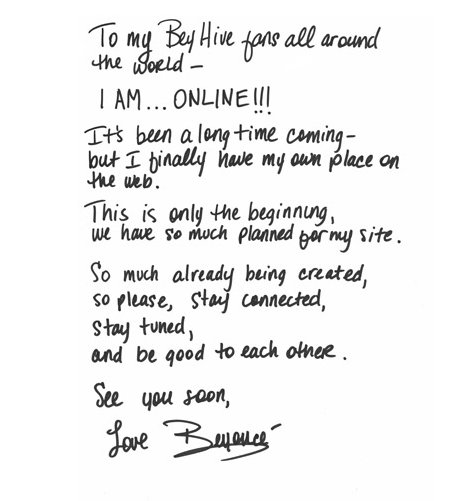 To my BeyHive fans all around
the world –
I AM... ONLINE!!!
It's been a long time coming –
but I finally have my own place on
the web.
This is only the beginning,
we have so much planned for my site.
So much already being created,
so please, stay connected,
stay tuned,
and be good to each other.
See you soon,
Love Beyoncé